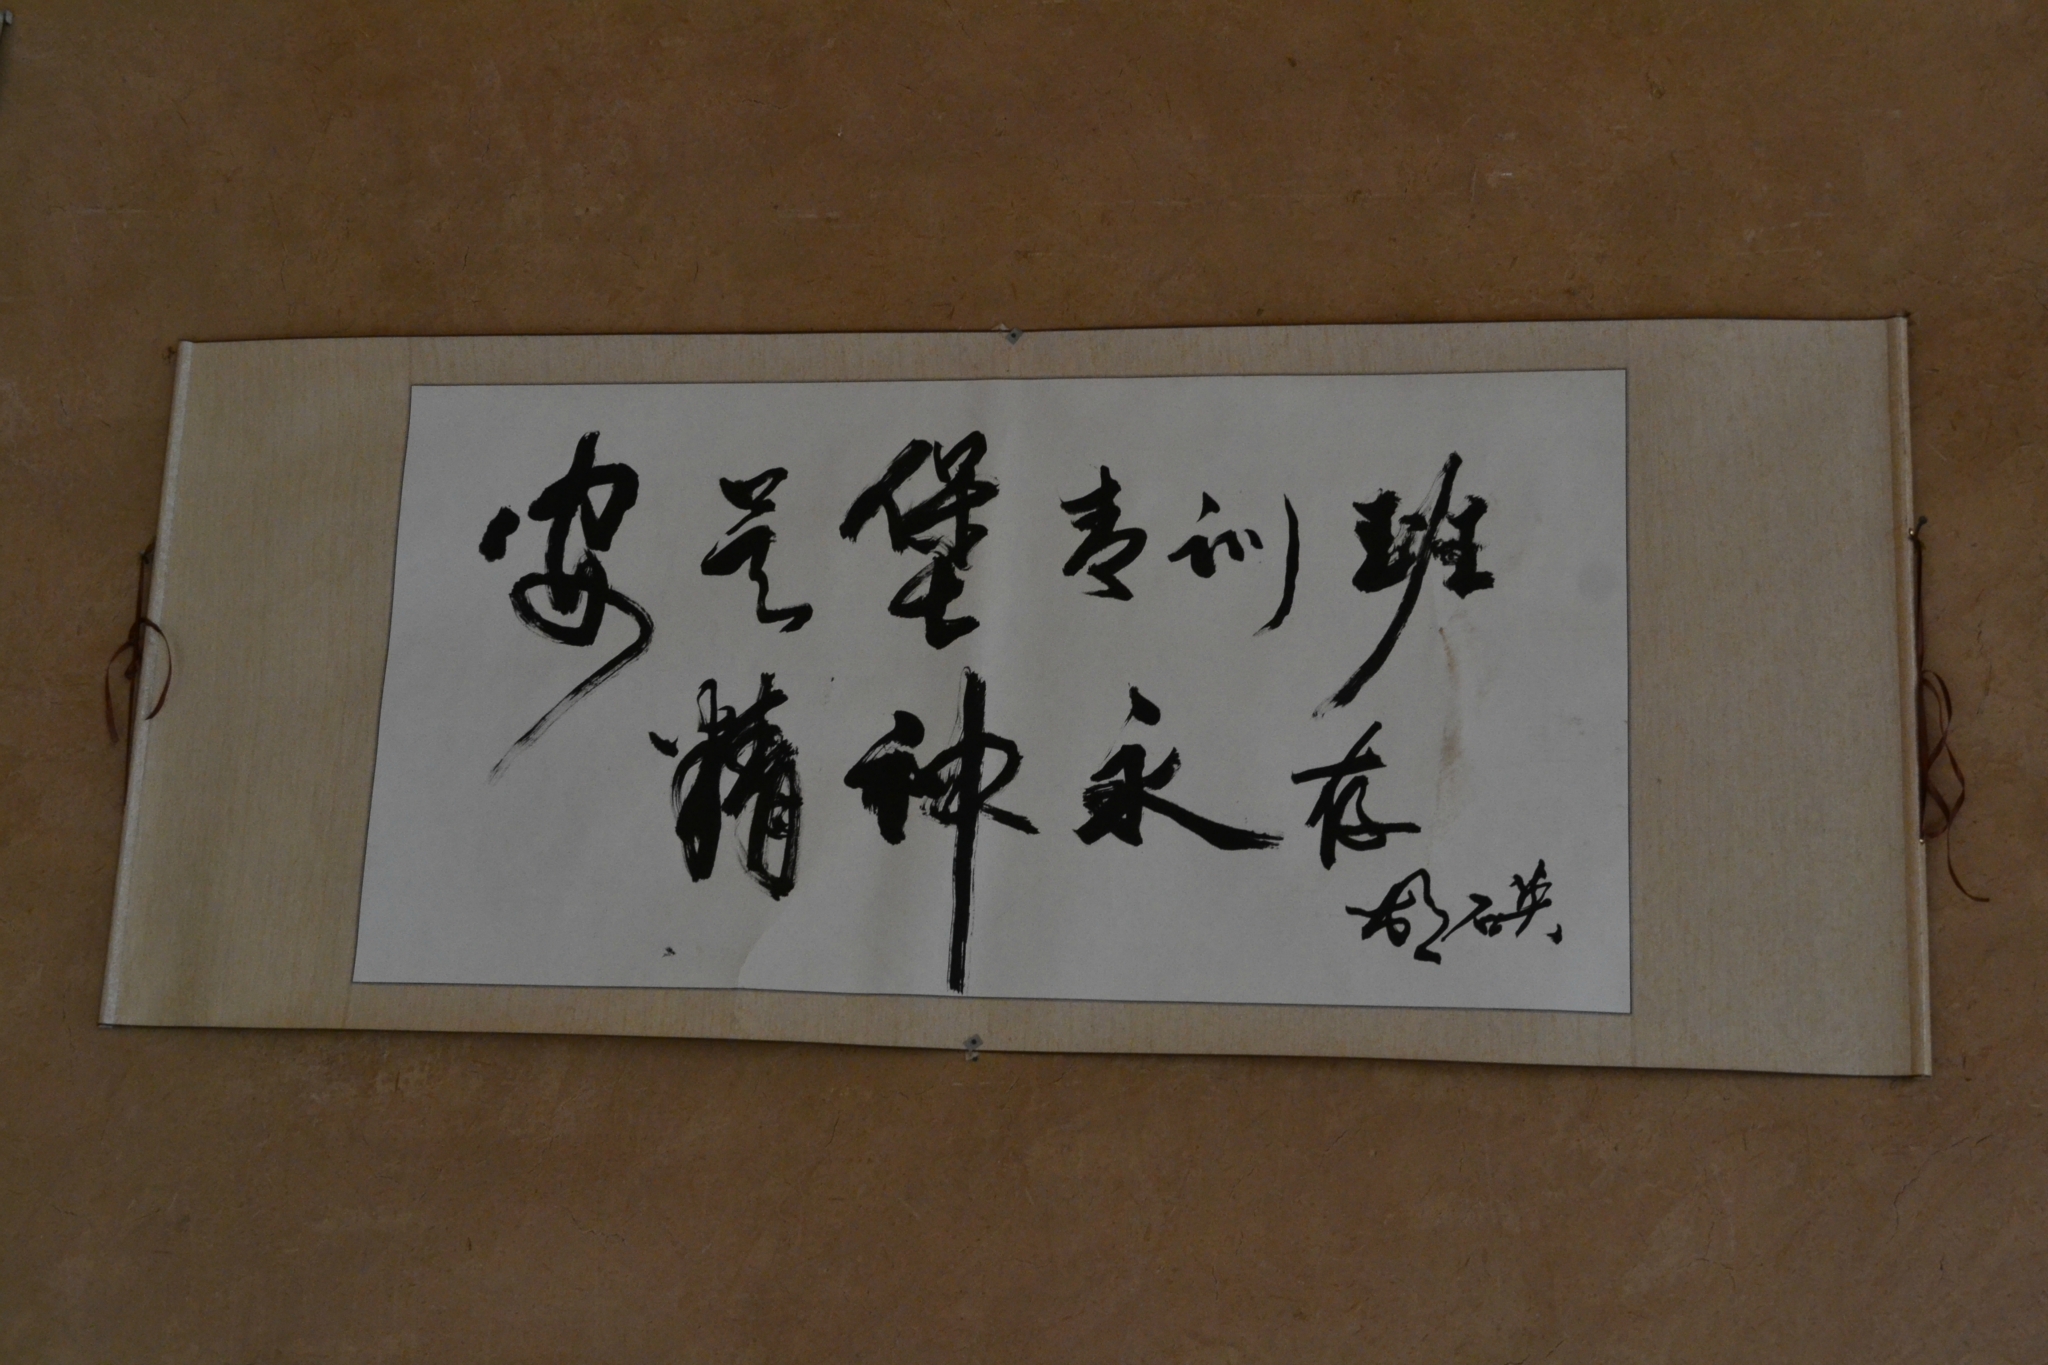 安吴堡青训班
精神永存
胡石英